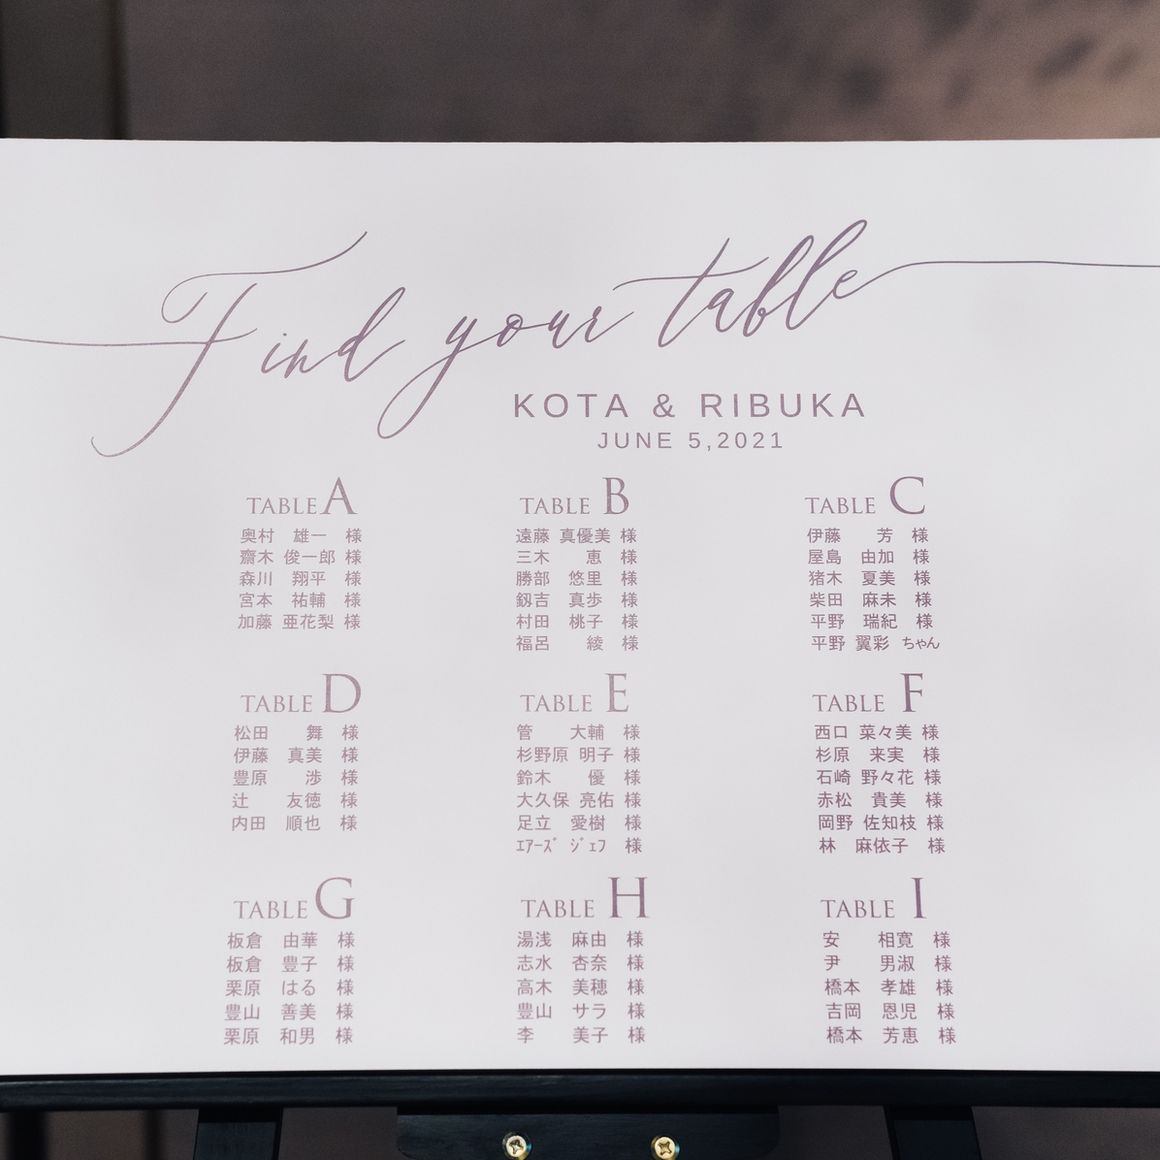 Find your table
KOTA & RIBUKA
JUNE 5,2021
TABLE A
奥村 雄一 様
齋木 俊一郎 様
森川 翔平 様
宮本 祐輔 様
加藤 亜花梨 様
TABLE B
遠藤 真優美 様
三木 恵 様
勝部 悠里 様
釼吉 真歩 様
村田 桃子 様
福呂 綾 様
TABLE C
伊藤 芳 様
屋島 由加 様
猪木 夏美 様
柴田 麻未 様
平野 瑞紀 様
平野 翼彩 ちゃん
TABLE D
松田 舞 様
伊藤 真美 様
豊原 渉 様
辻 友徳 様
内田 順也 様
TABLE E
管 大輔 様
杉野原 明子 様
鈴木 優 様
大久保 亮佑 様
足立 愛樹 様
ｴｱｰｽﾞ ｼﾞｪﾌ 様
TABLE F
西口 菜々美 様
杉原 来実 様
石崎 野々花 様
赤松 貴美 様
岡野 佐知枝 様
林 麻依子 様
TABLE G
板倉 由華 様
板倉 豊子 様
栗原 はる 様
豊山 善美 様
栗原 和男 様
TABLE H
湯浅 麻由 様
志水 杏奈 様
高木 美穂 様
豊山 サラ 様
李 美子 様
TABLE I
安 相寛 様
尹 男淑 様
橋本 孝雄 様
吉岡 恩児 様
橋本 芳恵 様